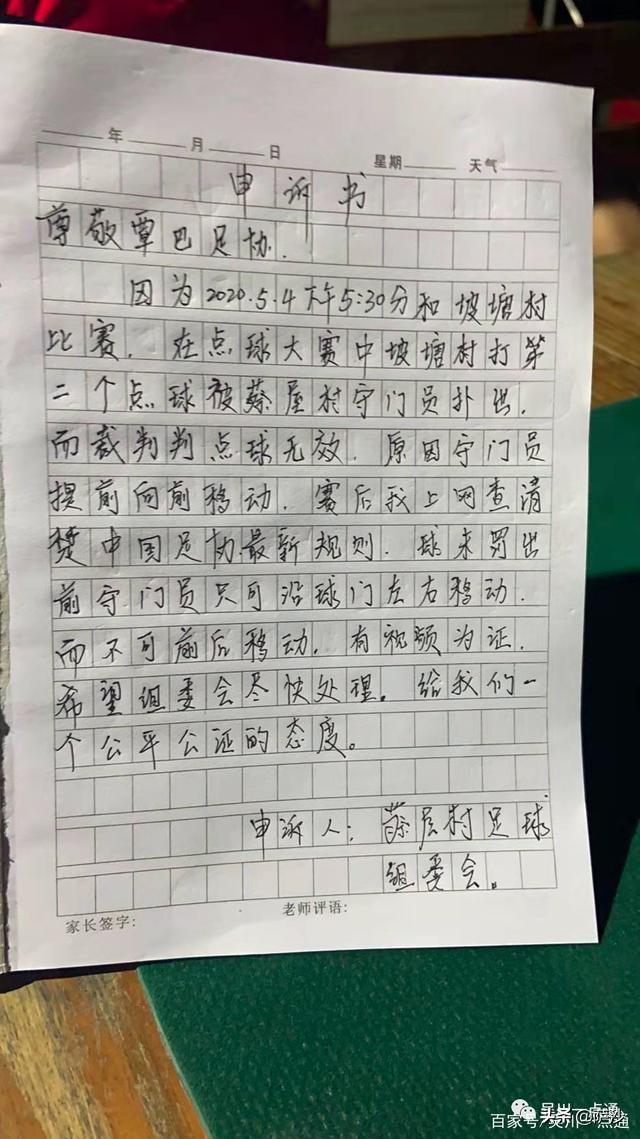 年 月 日 星期 天气
申诉书
尊敬覃巴足协.
因为2020.5.4下午5:30分和坡塘村
比赛. 在点球大赛中坡塘村打第
二个点球被蔡屋村守门员扑出.
而裁判判点球无效. 原因守门员
提前向前移动. 赛后我上网查清
楚中国足协最新规则. 球未罚出
前守门员只可沿球门左右移动.
而不可前后移动. 有视频为证.
希望组委会尽快处理。给我们一
个公平公证的态度。
申诉人: 蔡屋村足球
组委会。
家长签字: 老师评语: